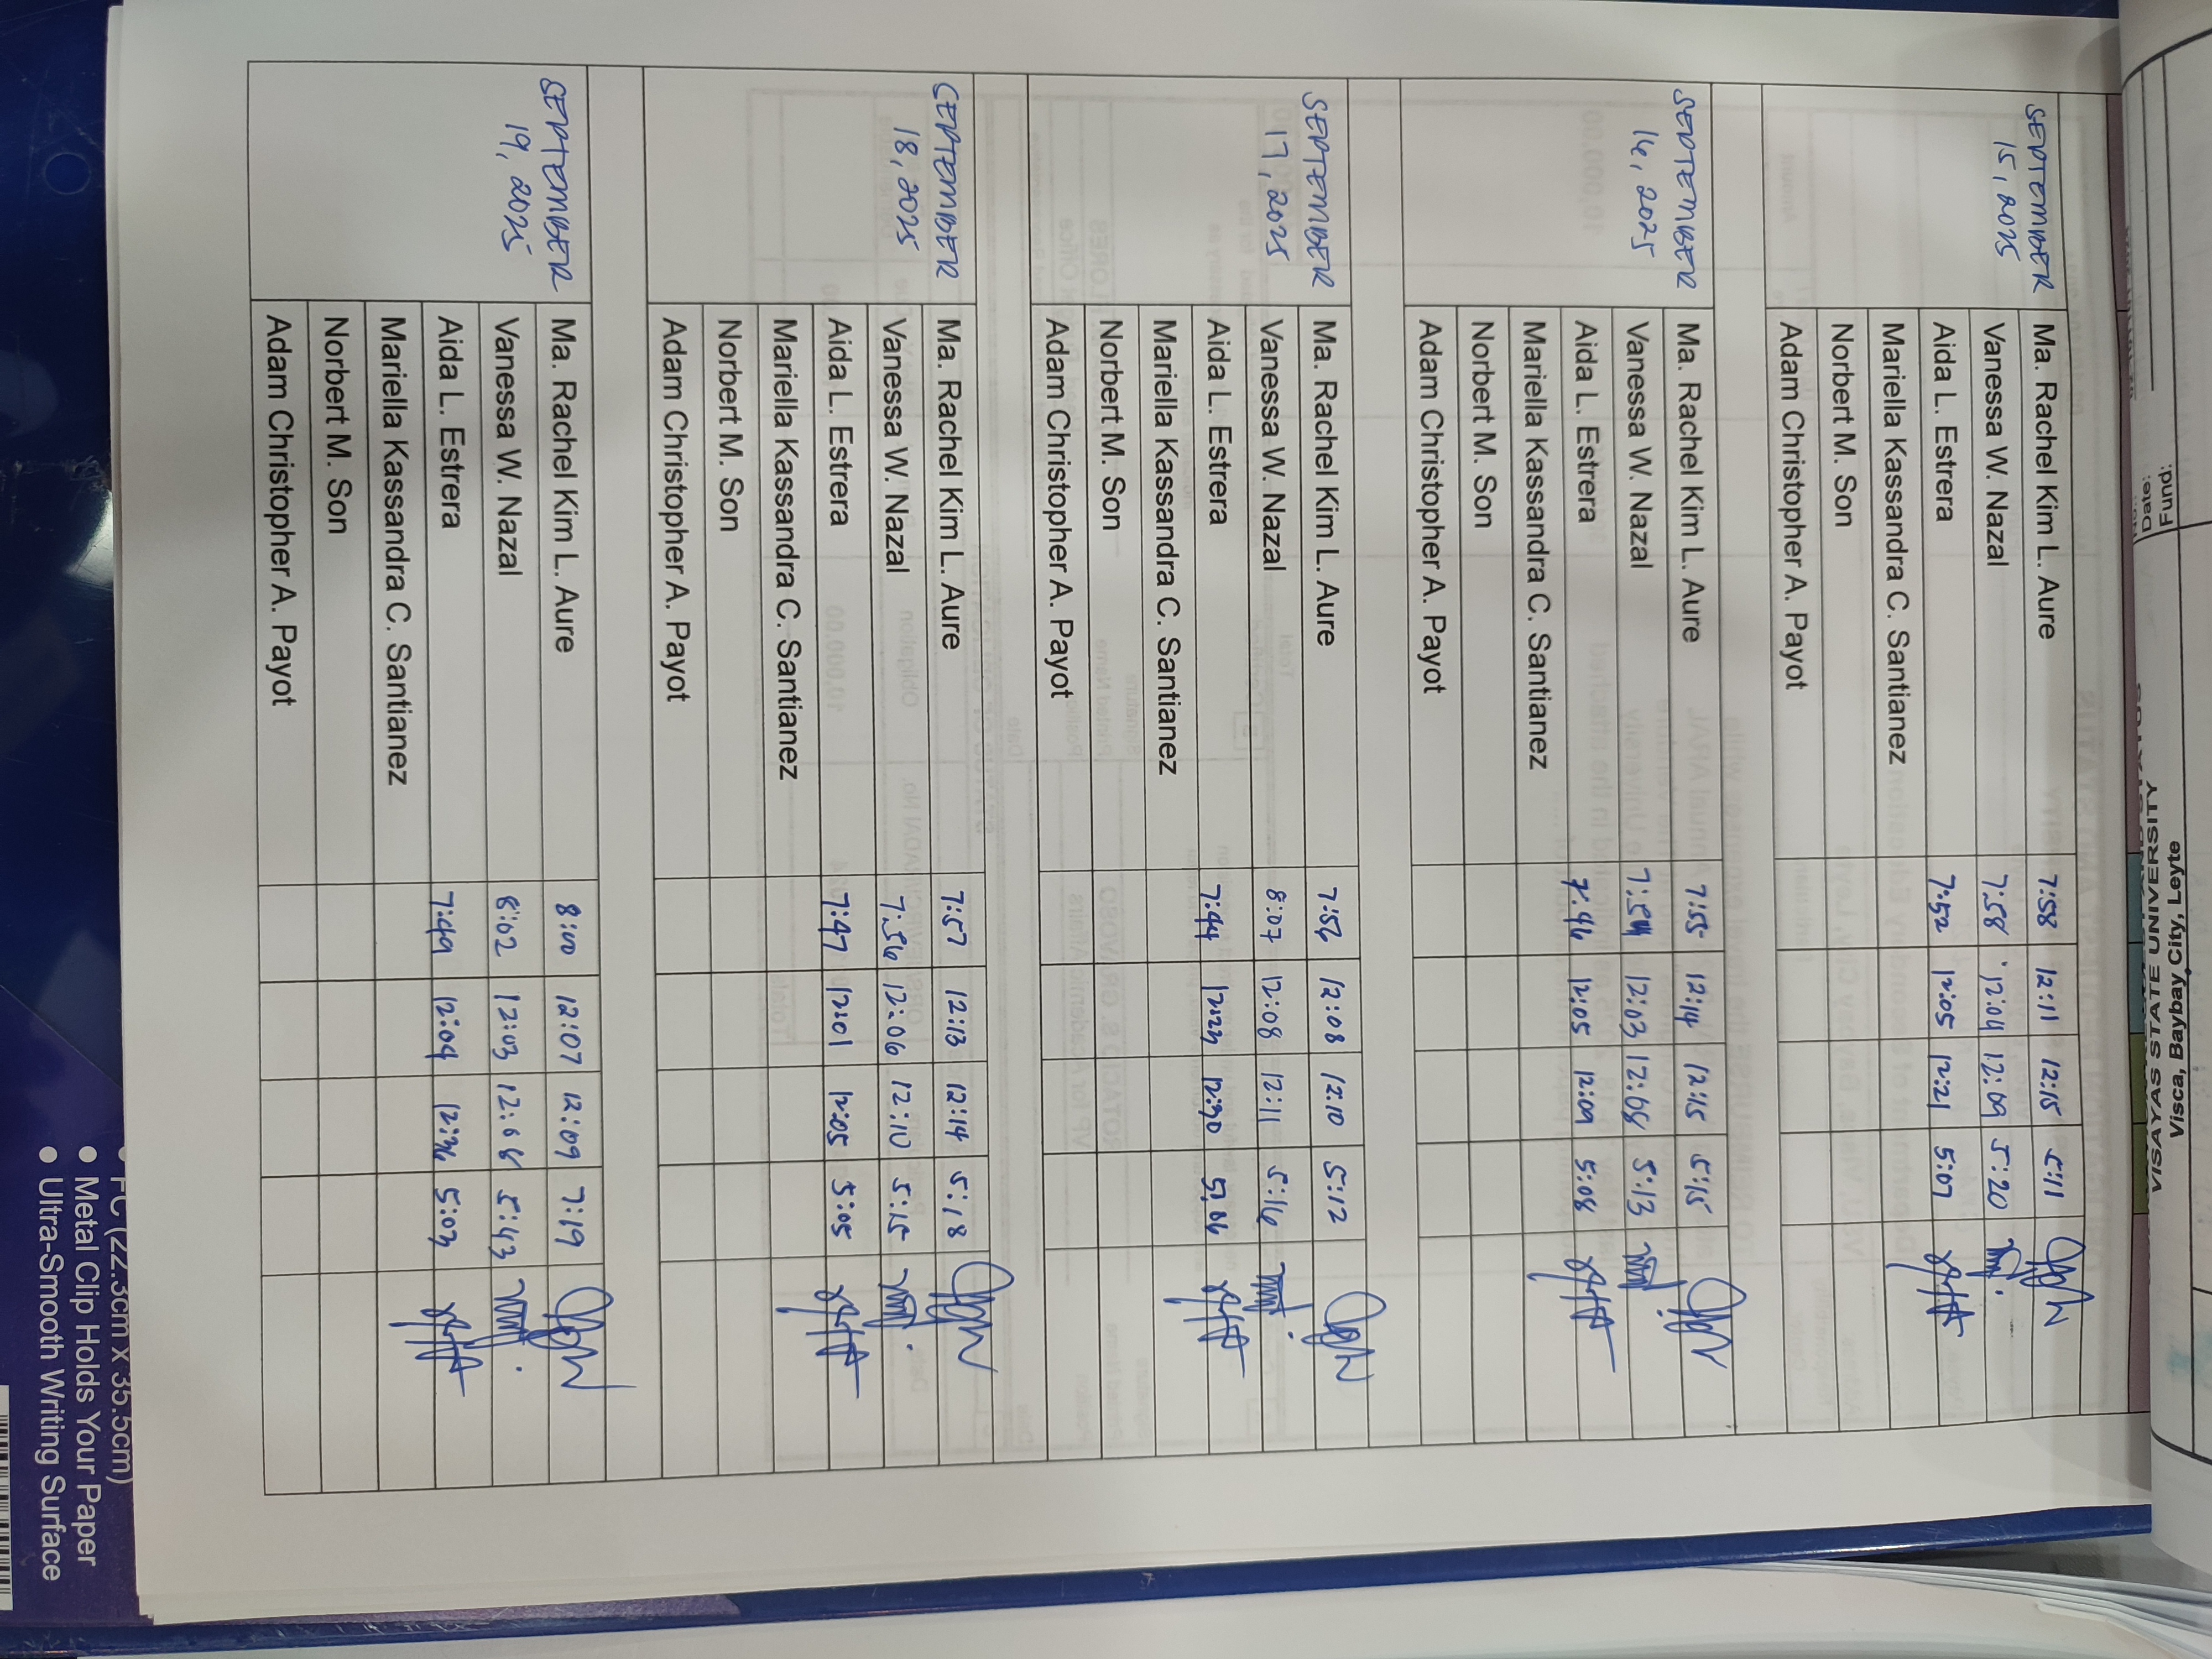 Visca, Baybay City, Leyte
VISAYAS STATE UNIVERSITY
Fund:
Date:
SEPTEMBER 15, 2025
Ma. Rachel Kim L. Aure 7:58 12:11 12:15 5:11
Vanessa W. Nazal 7:58 12:04 12:09 5:20
Aida L. Estrera 7:52 12:05 12:21 5:07
Mariella Kassandra C. Santianez
Norbert M. Son
Adam Christopher A. Payot
SEPTEMBER 16, 2025
Ma. Rachel Kim L. Aure 7:55 12:14 12:15 5:15
Vanessa W. Nazal 7:54 12:03 12:08 5:13
Aida L. Estrera 7:46 12:05 12:09 5:08
Mariella Kassandra C. Santianez
Norbert M. Son
Adam Christopher A. Payot
SEPTEMBER 17, 2025
Ma. Rachel Kim L. Aure 7:56 12:08 12:10 5:12
Vanessa W. Nazal 8:07 12:08 12:11 5:16
Aida L. Estrera 7:44 12:23 12:30 5:06
Mariella Kassandra C. Santianez
Norbert M. Son
Adam Christopher A. Payot
SEPTEMBER 18, 2025
Ma. Rachel Kim L. Aure 7:57 12:13 12:14 5:18
Vanessa W. Nazal 7:56 12:06 12:10 5:15
Aida L. Estrera 7:47 12:01 12:05 5:05
Mariella Kassandra C. Santianez
Norbert M. Son
Adam Christopher A. Payot
SEPTEMBER 19, 2025
Ma. Rachel Kim L. Aure 8:00 12:07 12:09 7:19
Vanessa W. Nazal 8:02 12:03 12:08 5:43
Aida L. Estrera 7:49 12:04 5:03
Mariella Kassandra C. Santianez
Norbert M. Son
Adam Christopher A. Payot
FC (22.3cm x 35.5cm)
Metal Clip Holds Your Paper
Ultra-Smooth Writing Surface